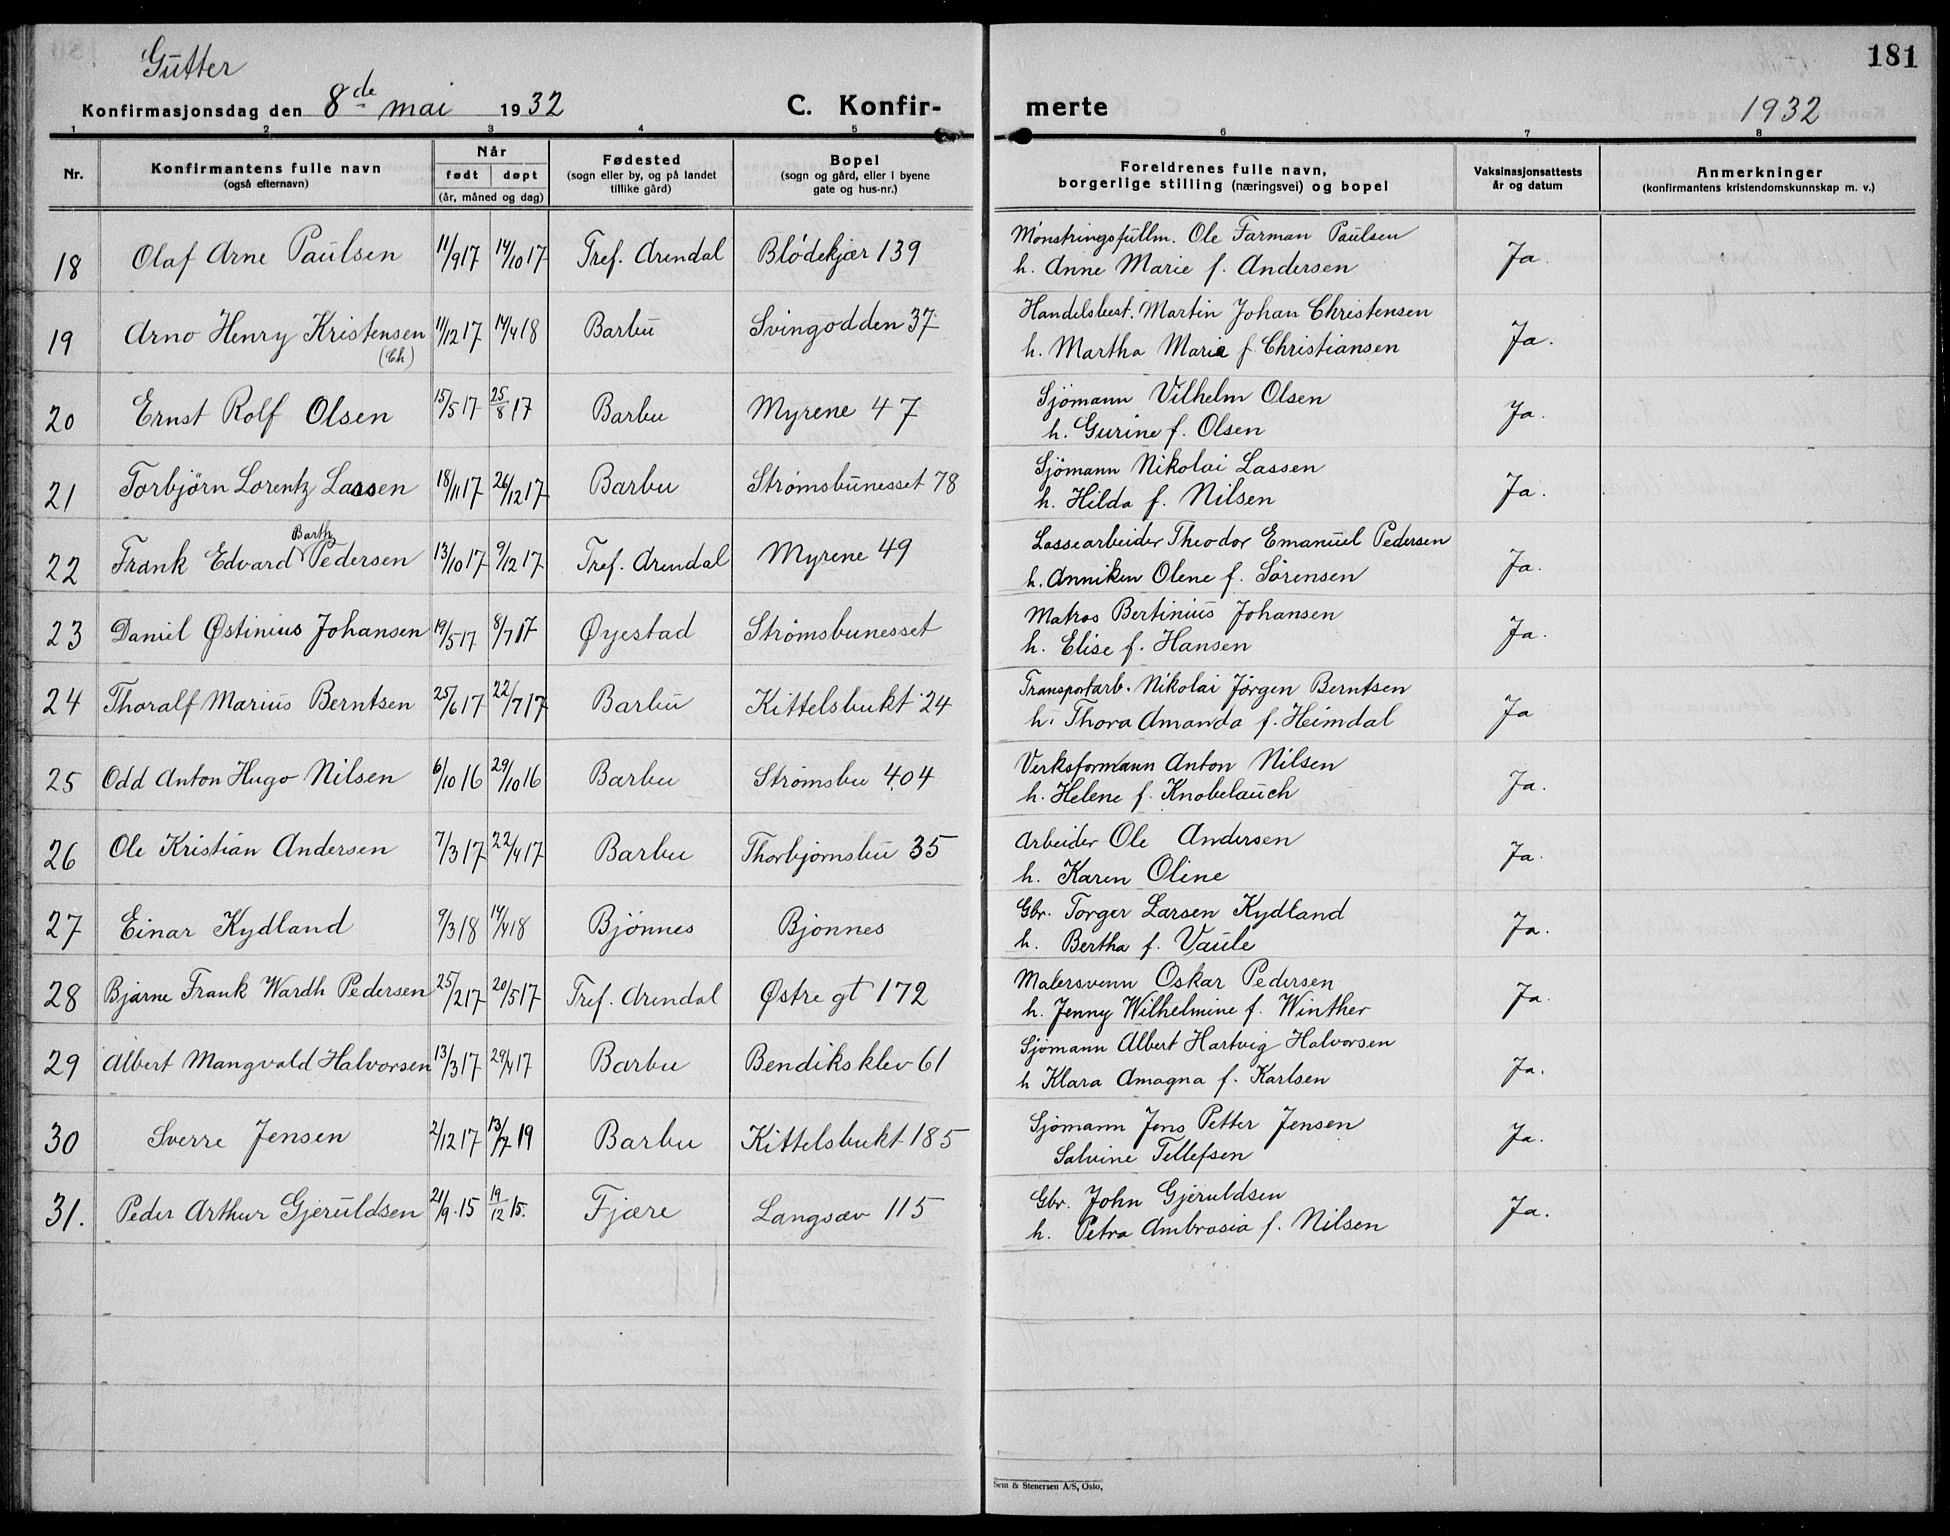 Gutter
181
Konfirmasjonsdag den 8de mai 1932 C. Konfir- merte 1932
1 2 3 4 5 6 7 8
Nr. Konfirmantens fulle navn (også efternavn) Når født døpt (år, måned og dag) Fødested (sogn eller by, og på landet tillike gård) Bopel (sogn og gård, eller i byene gate og hus-nr.) Foreldrenes fulle navn, borgerlige stilling (næringsvei) og bopel Vaksinasjonsattests år og datum Anmerkninger (konfirmantens kristendomskunnskap m. v.)
18 Olaf Arne Paulsen 11/9 17 14/10 17 Tref. Arendal Blödekjær 139 Mönstringsfullm. Ole Farman Paulsen Ja.
h. Anne Marie f. Andersen
19 Arno Henry Kristensen 11/12 17 14/4 18 Barbu Svingodden 37 Handelsbest. Martin Johan Christensen Ja.
(Ch) h. Martha Marie f Christiansen
20 Ernst Rolf Olsen 15/5 17 25/8 17 Barbu Myrene 47 Sjömann Vilhelm Olsen Ja.
h. Gurine f. Olsen
21 Torbjörn Lorentz Lassen 18/11 17 26/12 17 Barbu Strömsbunesset 78 Sjömann Nikolai Lassen Ja.
h. Hilda f. Nilsen
22 Frank Edvard Barth Pedersen 13/10 17 9/12 17 Tref. Arendal Myrene 49 Lossearbeider Theodor Emanuel Pedersen Ja.
h. Anniken Olene f. Sörensen
23 Daniel Østinius Johansen 19/5 17 8/7 17 Øyestad Strömsbunesset Matros Bertinius Johansen Ja.
h. Elise f. Hansen
24 Thoralf Marius Berntsen 25/6 17 22/7 17 Barbu Kittelsbukt 24 Transportarb. Nikolai Jörgen Berntsen Ja
h. Thora Amanda f. Heimdal
25 Odd Anton Hugo Nilsen 6/10 16 29/10 16 Barbu Strömsbu 404 Verksformann Anton Nilsen Ja.
h. Helene f. Knobelauch
26 Ole Kristian Andersen 7/3 17 22/4 17 Barbu Thorbjörnsbu 35 Arbeider Ole Andersen Ja.
h. Karen Oline
27 Einar Kydland 9/3 18 14/4 18 Bjönnes Bjönnes Gbr. Torger Larsen Kydland Ja.
h. Bertha f. Vaule
28 Bjarne Frank Wardh Pedersen 25/2 17 20/5 17 Tref. Arendal Østre gt 172 Malersvenn Oskar Pedersen Ja.
h. Jenny Wilhelmine f. Winther
29 Albert Mangvald Halvorsen 13/3 17 29/4 17 Barbu Bendiksklev 61 Sjömann Albert Hartvig Halvorsen Ja.
h Klara Amagna f. Karlsen
30 Sverre Jensen 2/12 17 13/7 19 Barbu Kittelsbukt 185 Sjömann Jens Petter Jensen Ja.
Salvine Tellefsen
31. Peder Arthur Gjeruldsen 21/9. 15 19/12 15. Fjære Langsæv 115 Gbr. John Gjeruldsen Ja.
h. Petra Ambrosia f. Nilsen
Sem & Stenersen A/S, Oslo,